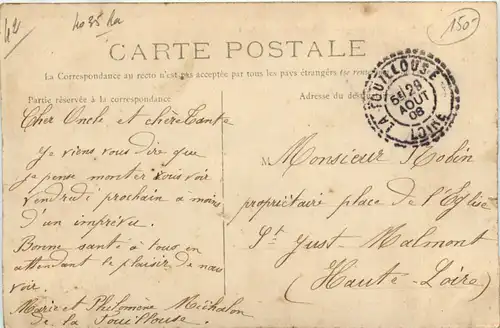 42
4035 Aa
150-
CARTE POSTALE
La Correspondance au recto n'est pas acceptée par tous les pays étrangers (se
Partie réservée à la correspondance
Adresse du
LA FOUILLOUSE
28
AOUT
08
LOIRE
Cher Oncle et chère Tante
Je viens vous dire que
je pense monter vous voir
vendredi prochain à moins
d'un imprévu.
Bonne santé à tous en
attendant le plaisir de nous
voir.
Marie et Philomène Michalon
de la Fouillouse.
M Monsieur Robin
propriétaire place de l'Eglise
St Just-Malmont
(Haute-Loire)